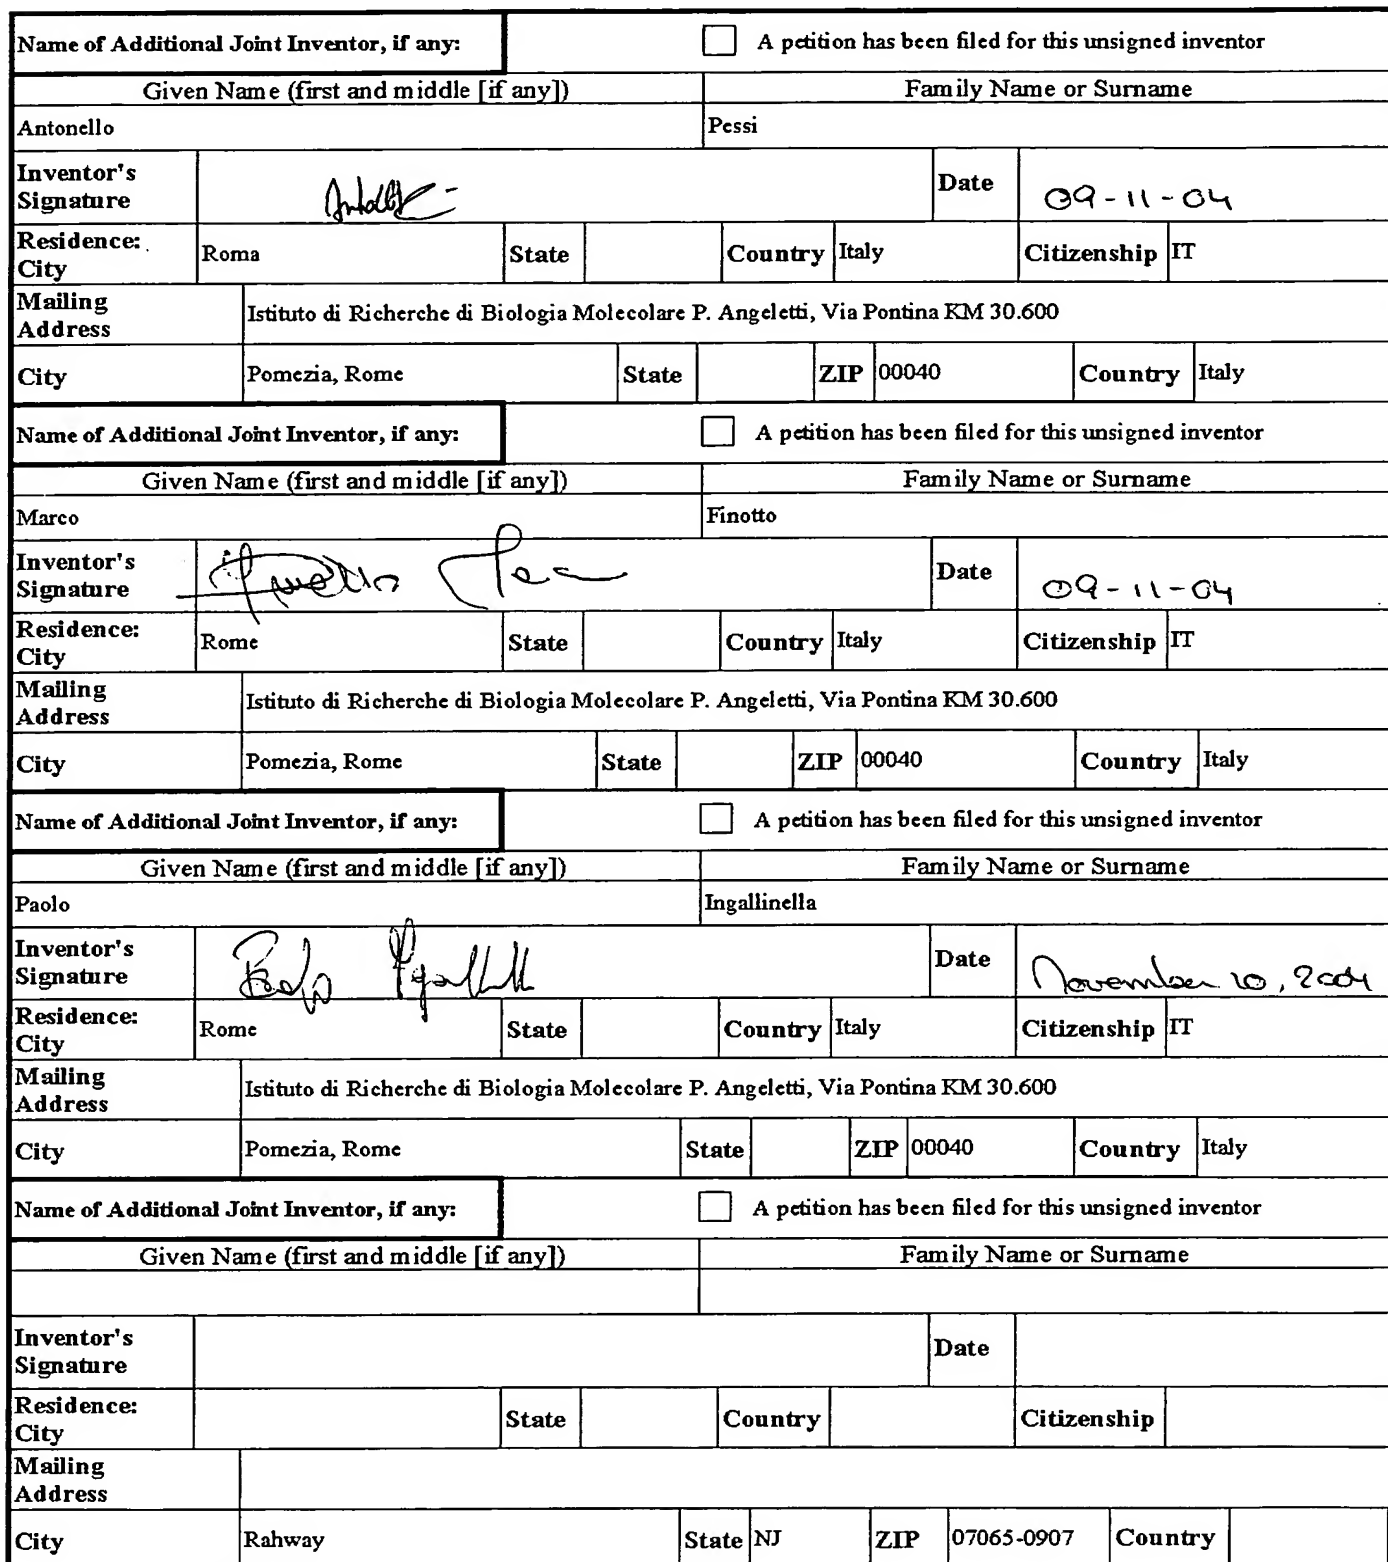 Name of Additional Joint Inventor, if any: A petition has been filed for this unsigned inventor
Given Name (first and middle [if any]) Family Name or Surname
Antonello Pessi
Inventor's Signature Date 09-11-04
Residence: City Roma State Country Italy Citizenship IT
Mailing Address Istituto di Richerche di Biologia Molecolare P. Angeletti, Via Pontina KM 30.600
City Pomezia, Rome State ZIP 00040 Country Italy
Name of Additional Joint Inventor, if any: A petition has been filed for this unsigned inventor
Given Name (first and middle [if any]) Family Name or Surname
Marco Finotto
Inventor's Signature Date 09-11-04
Residence: City Rome State Country Italy Citizenship IT
Mailing Address Istituto di Richerche di Biologia Molecolare P. Angeletti, Via Pontina KM 30.600
City Pomezia, Rome State ZIP 00040 Country Italy
Name of Additional Joint Inventor, if any: A petition has been filed for this unsigned inventor
Given Name (first and middle [if any]) Family Name or Surname
Paolo Ingallinella
Inventor's Signature Date November 10, 2004
Residence: City Rome State Country Italy Citizenship IT
Mailing Address Istituto di Richerche di Biologia Molecolare P. Angeletti, Via Pontina KM 30.600
City Pomezia, Rome State ZIP 00040 Country Italy
Name of Additional Joint Inventor, if any: A petition has been filed for this unsigned inventor
Given Name (first and middle [if any]) Family Name or Surname
Inventor's Signature Date
Residence: City State Country Citizenship
Mailing Address
City Rahway State NJ ZIP 07065-0907 Country